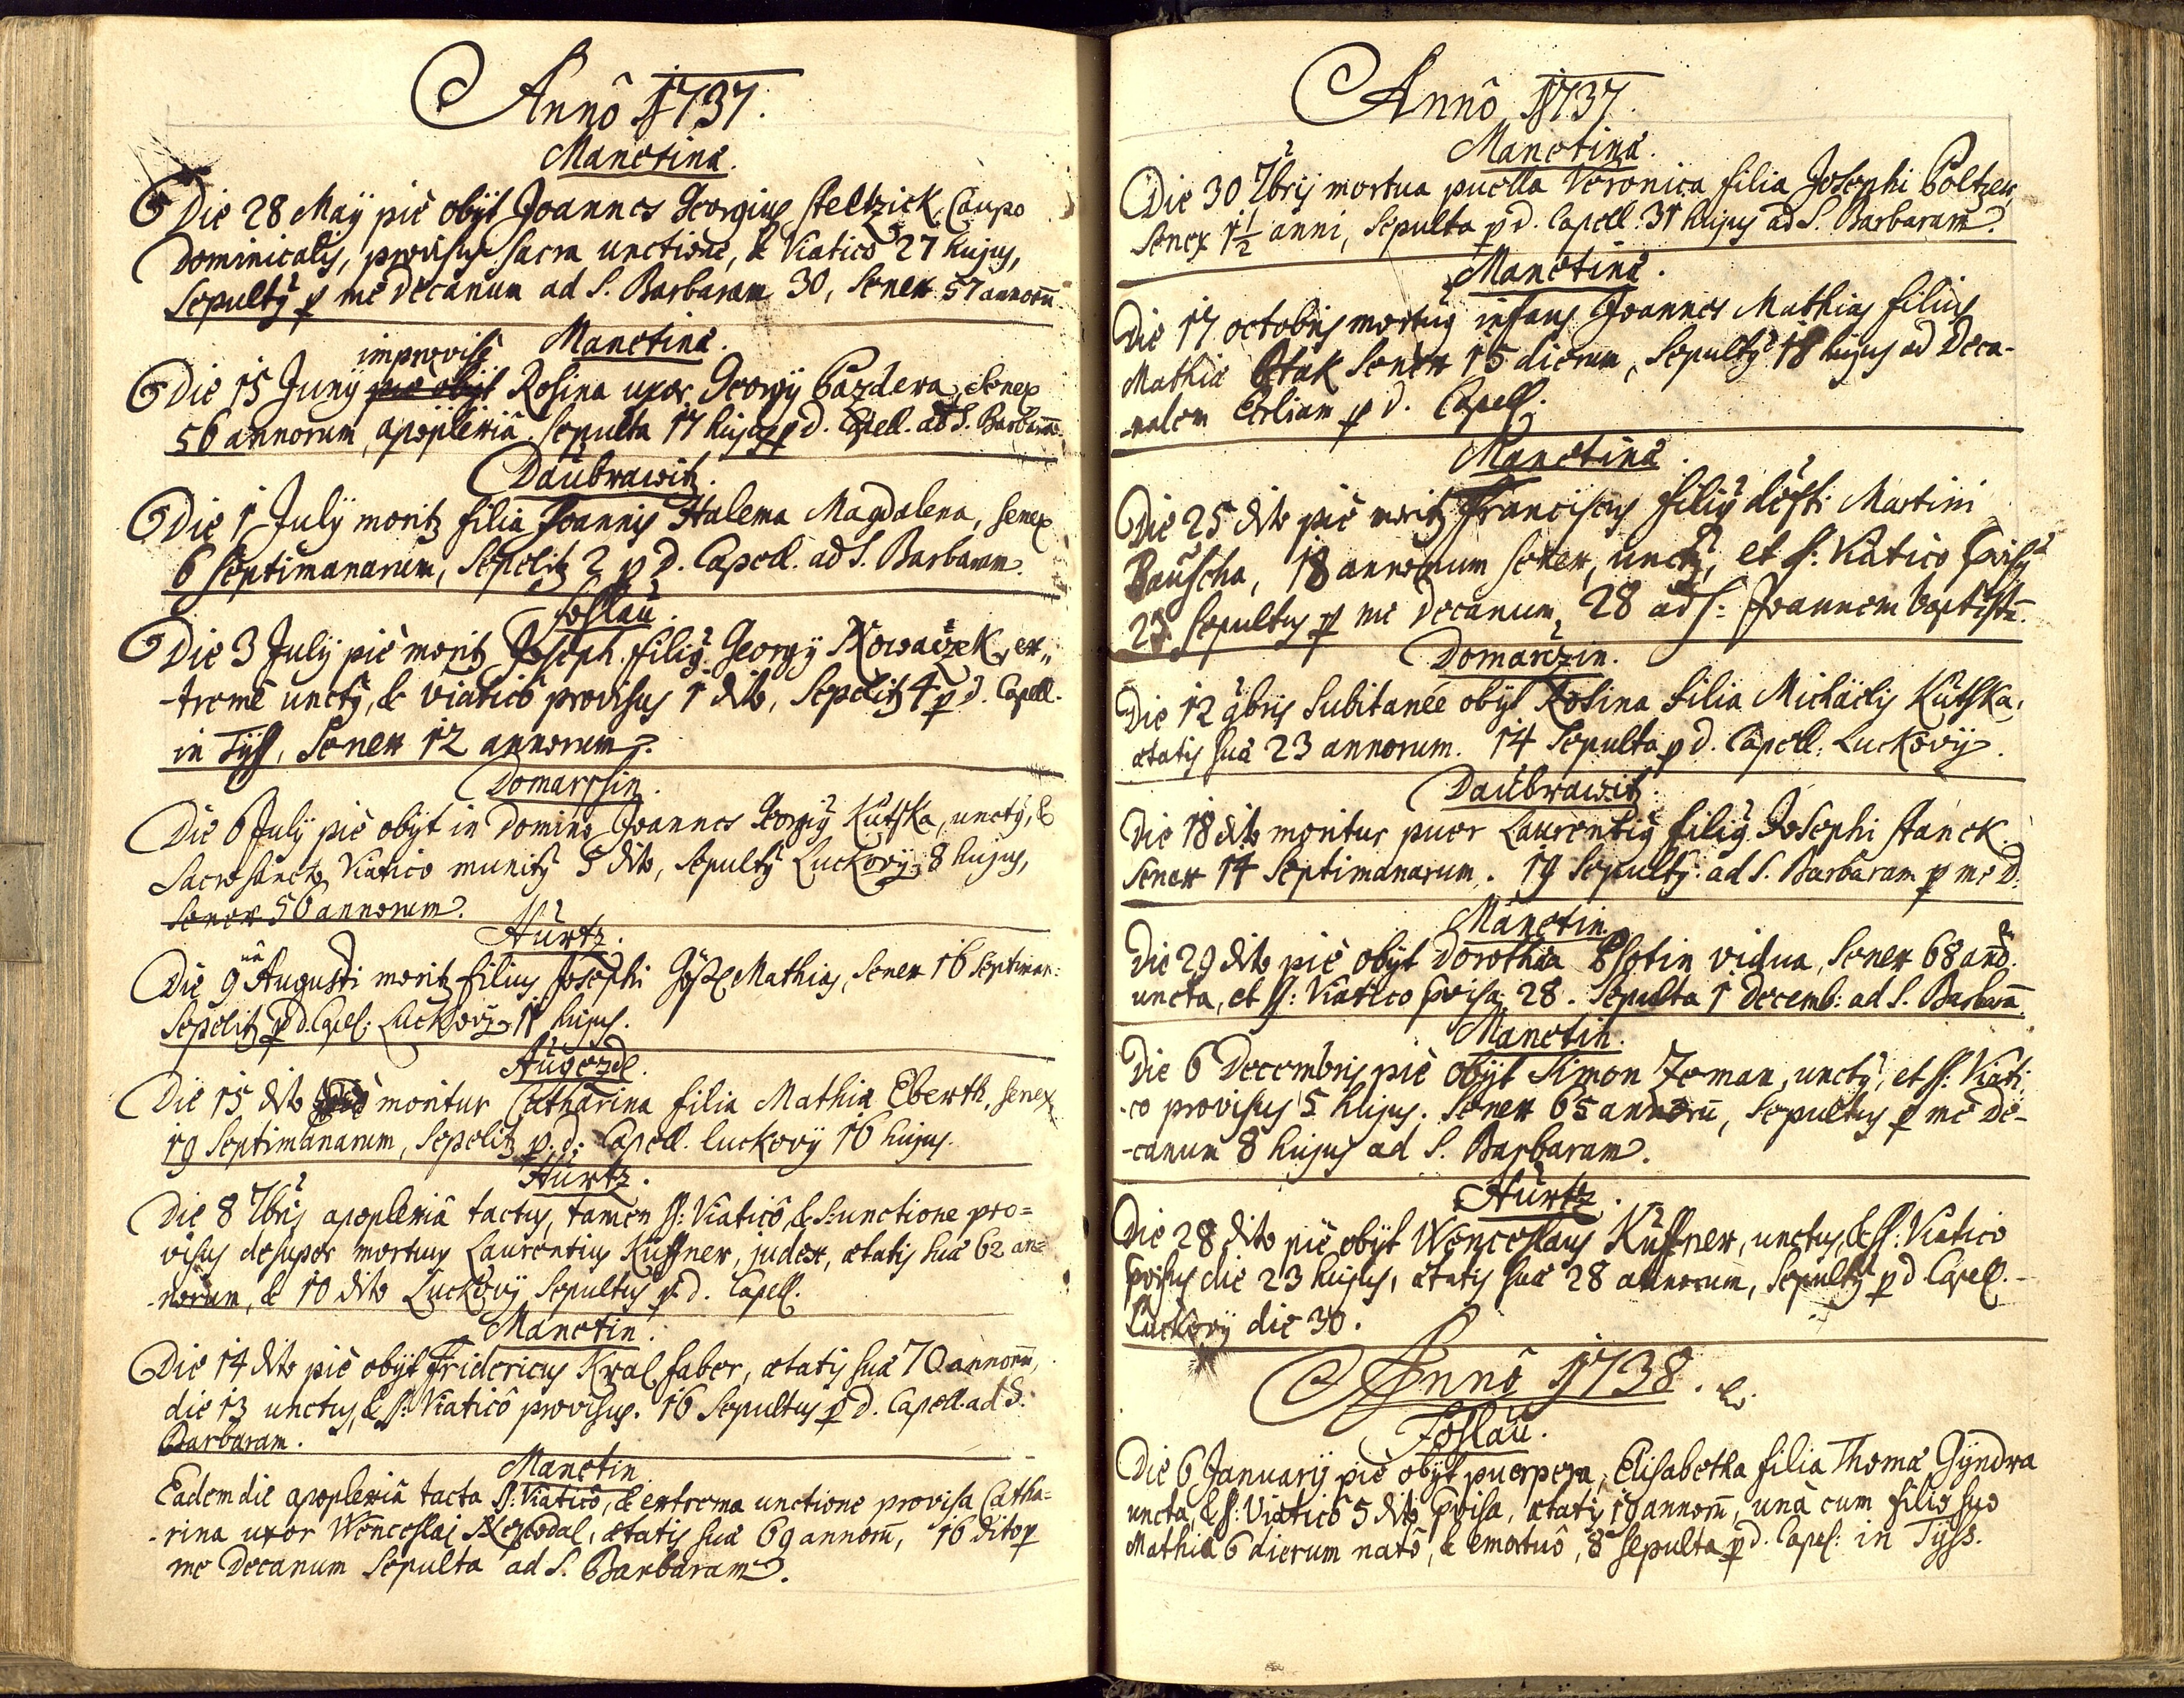 Annô 1737.
Manetinæ.
Die 28 Maÿ piè obÿt Joannes Georgius Steltzick, Caupo
Dominicalis, provisus sacra unctione, & Viaticô 27 hujus,
Sepultq p me Decanum ad S. Barbaram 30, Senex 57 annorũ
Manetinæ.
improvisè
Die 15 Junÿ pie obÿt Rosina uxor Georgÿ Pazdera, Senex
56 annorum, apoplexiâ, Sepulta 17 hujus p d. Capell. ad S. Barbarã.
Daubrawitz.
Die 1 Julÿ moritz filia Joannis Halema Magdalena, senex
6 Septimanarum, Sepelitz 2 p d. Capell. ad S. Barbaram.
Foslau.
Die 3 Julÿ piè moritz Joseph filiq Georgÿ Nowaczek, ex„
-tremè unctq, & viaticô provisus 1 dito, Sepelitz 4 p d. Capell.
in Tÿss, Senex 12 annorum.
Domarssin.
Die 6 Julÿ piè obÿt in Domino Joannes Georgiq Kutska, unctq, &
Sacrosancto Viatico munitq 5 dito, Sepultq Luckovÿ, 8 hujus,
Senex 56 annorum.
Hurtz.
Die 9 nâ Augusti moritz filius Josephi Mathias, Senex 16 Septiman:
Sepelitz p d. Capel: Luckovÿ 11 hujus.
Augezdl.
Die 15 dito moritur Catharina filia Mathiæ Eberth, senex
19 Septimanarum, Sepelitz p. d. Capell. luckovÿ 16 hujus.
Hurtz.
Die 8 7bris apoplexiâ tactus, tamen ss: Viaticô, & S: unctione pro=
visus desuper mortuus Laurentius Küffner, judex, ætatis suæ 62 an=
-norum, & 10 dito Luckovÿ Sepultus p d. Capell.
Manetin.
Die 14 dito piè obÿt Fridericus Kral, faber, ætatis suæ 70 annorũ,
die 13 unctus, & ss: Viaticô provisus. 16 Sepultus p d. Capell. ad S.
Barbaram.
Manetin.
Eadem die apoplexiâ tacta ss: Viaticô, & extrema unctione provisa Catha=
-rina uxor Wenceslai Nezbodal, ætatis suæ 69 annorũ, 16 dito p
me Decanum Sepulta ad S. Barbaram.
Annô 1737.
Manetinæ.
Die 30 7bris mortua puella Veronica filia Josephi Poltzer,
Senex 1½ anni, Sepulta p d. Capell. 31 hujus ad S. Barbaram.
Manetinæ.
Die 17 octobris mortuq infans Joannes Mathias filius
Mathiæ Ptak Senex 15 dierum, Sepultq 18 hujus ad Deca-
-nalem Eccliam p d. Capell.
Manetinæ.
Die 25 dito piè moritz Franciscus filiq defti Martini
Bauscha, 18 annorum senex, unctq, et s: Viatico pvisq
23. Sepultus p me Decanum, 28 ad s: Joannem baptistã.
Domarzin.
Die 12 9bris Subitaneè obÿt Rosina filia Michaëlis Kutska,
ætatis suæ 23 annorum. 14 Sepulta p d. Capell. Luckovÿ.
Daubrawitz.
Die 18 dito moritur puer Laurentiq filiq Josephi Stanek
Senex 14 Septimanarum. 19 Sepultq ad S. Barbaram p me D.
Manetin.
Die 29 dito piè obÿt Dorothæa vidua, Senex 68 anno.
uncta, et ss: Viatico pvisa 28. Sepulta 1 Decemb: ad S. Barbarã.
Manetin.
Die 6 Decembris piè obÿt Simon Zeman, unctq, et ss: Viati
-co provisus 5 hujus. Senex 65 annorũ, Sepultus p me De-
-canum 8 hujus ad S. Barbaram.
Hurtz.
Die 28 dito piè obÿt Wenceslaus Küffner, unctus, & ss: Viatico
pvisus die 23 hujus, ætatis suæ 28 annorum, Sepultq p d Capell.
Luckovÿ die 30.
Annô 1738.
Foslau.
Die 6 Januarÿ piè obÿt puerpera, Elisabetha filia Thomæ Gÿndra
uncta, & s: Viaticô 5 dito pvisa, ætatis 19 annorũ, unâ cum filio suo
Mathia 6 dierum natô, & emortuô, 8 sepulta p d. Capel: in Tÿss.